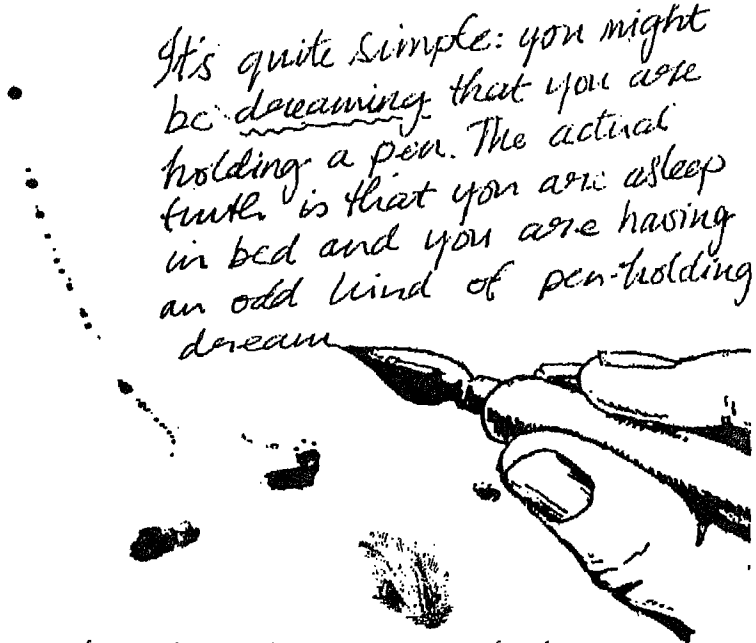 It's quite simple: you might
be dreaming that you are
holding a pen. The actual
truth is that you are asleep
in bed and you are having
an odd kind of pen-holding
dream